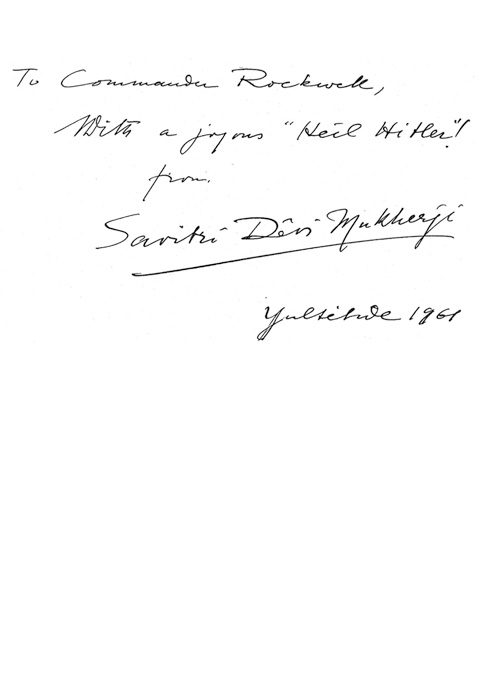 To Commander Rockwell,
With a joyous "Heil Hitler"!
from
Savitri Dêvi Mukherji
Yuletide 1961